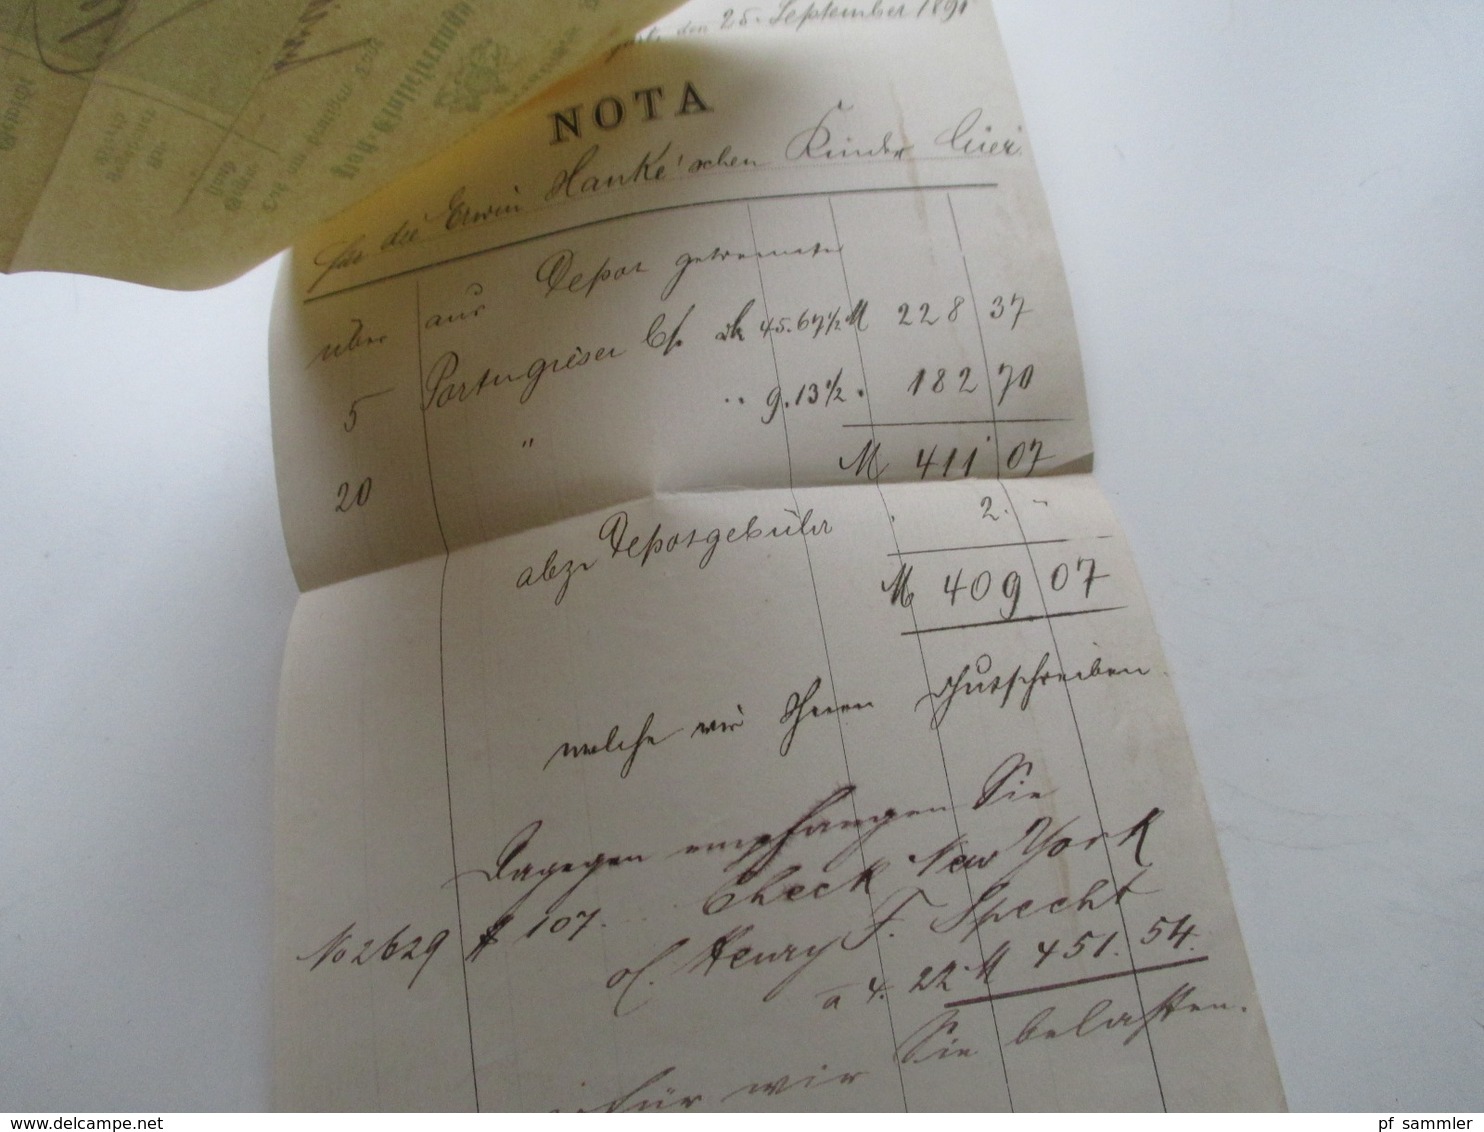 den 25. September 189
NOTA
für die Erwin Hanke'schen Kinder hier
über aus Depot getrennte
5 Portugieser Cp. Mk 45.67½ M 228 37
20 " " 9.13½ " 182 70
M 411 07
abzr Depotgebühr 2. -
M 409 07
welche wir Ihnen gutschreiben
Dagegen empfangen Sie
No 2629 $ 107. Check New York
Henry F. Specht
a 4.22 M 451.54.
für wir Sie belasten.
www.delcampe.net
pf sammler